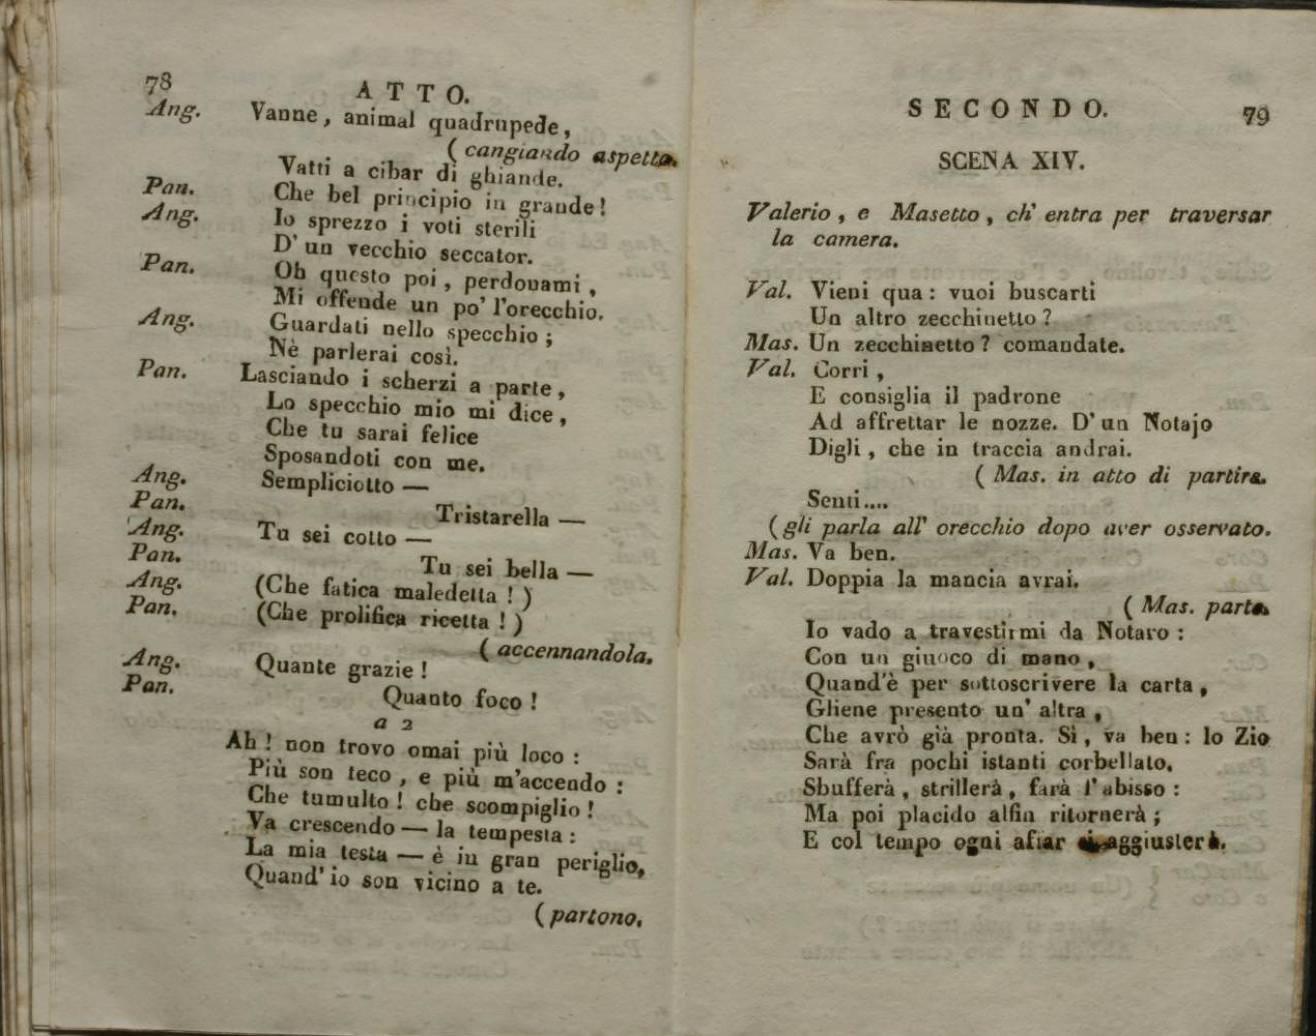 78
ATTO.
Ang. Vanne, animal quadrupede,
(cangiando aspetto.
Vatti a cibar di ghiande.
Pan. Che bel principio in grande!
Ang. Io sprezzo i voti sterili
D'un vecchio seccator.
Pan. Oh questo poi, perdonami,
Mi offende un po' l'orecchio.
Ang. Guardati nello specchio;
Nè parlerai così.
Pan. Lasciando i scherzi a parte,
Lo specchio mio mi dice,
Che tu sarai felice
Sposandoti con me.
Ang. Sempliciotto —
Pan. Tristarella —
Ang. Tu sei cotto —
Pan. Tu sei bella —
Ang. (Che fatica maledetta!)
Pan. (Che prolifica ricetta!)
(accennandola.
Ang. Quante grazie!
Pan. Quanto foco!
a 2
Ah! non trovo omai più loco:
Più son teco, e più m'accendo:
Che tumulto! che scompiglio!
Va crescendo — la tempesta:
La mia testa — è in gran periglio,
Quand'io son vicino a te.
(partono.
SECONDO. 79
SCENA XIV.
Valerio, e Masetto, ch'entra per traversar
la camera.
Val. Vieni qua: vuoi buscarti
Un altro zecchinetto?
Mas. Un zecchinetto? comandate.
Val. Corri,
E consiglia il padrone
Ad affrettar le nozze. D'un Notajo
Digli, che in traccia andrai.
(Mas. in atto di partire.
Senti....
(gli parla all'orecchio dopo aver osservato.
Mas. Va ben.
Val. Doppia la mancia avrai.
(Mas. parte.
Io vado a travestirmi da Notaro:
Con un giuoco di mano,
Quand'è per sottoscrivere la carta,
Gliene presento un'altra,
Che avrò già pronta. Sì, va ben: lo Zio
Sarà fra pochi istanti corbellato.
Sbufferà, strillerà, farà l'abisso:
Ma poi placido alfin ritornerà;
E col tempo ogni affar si aggiusterà.